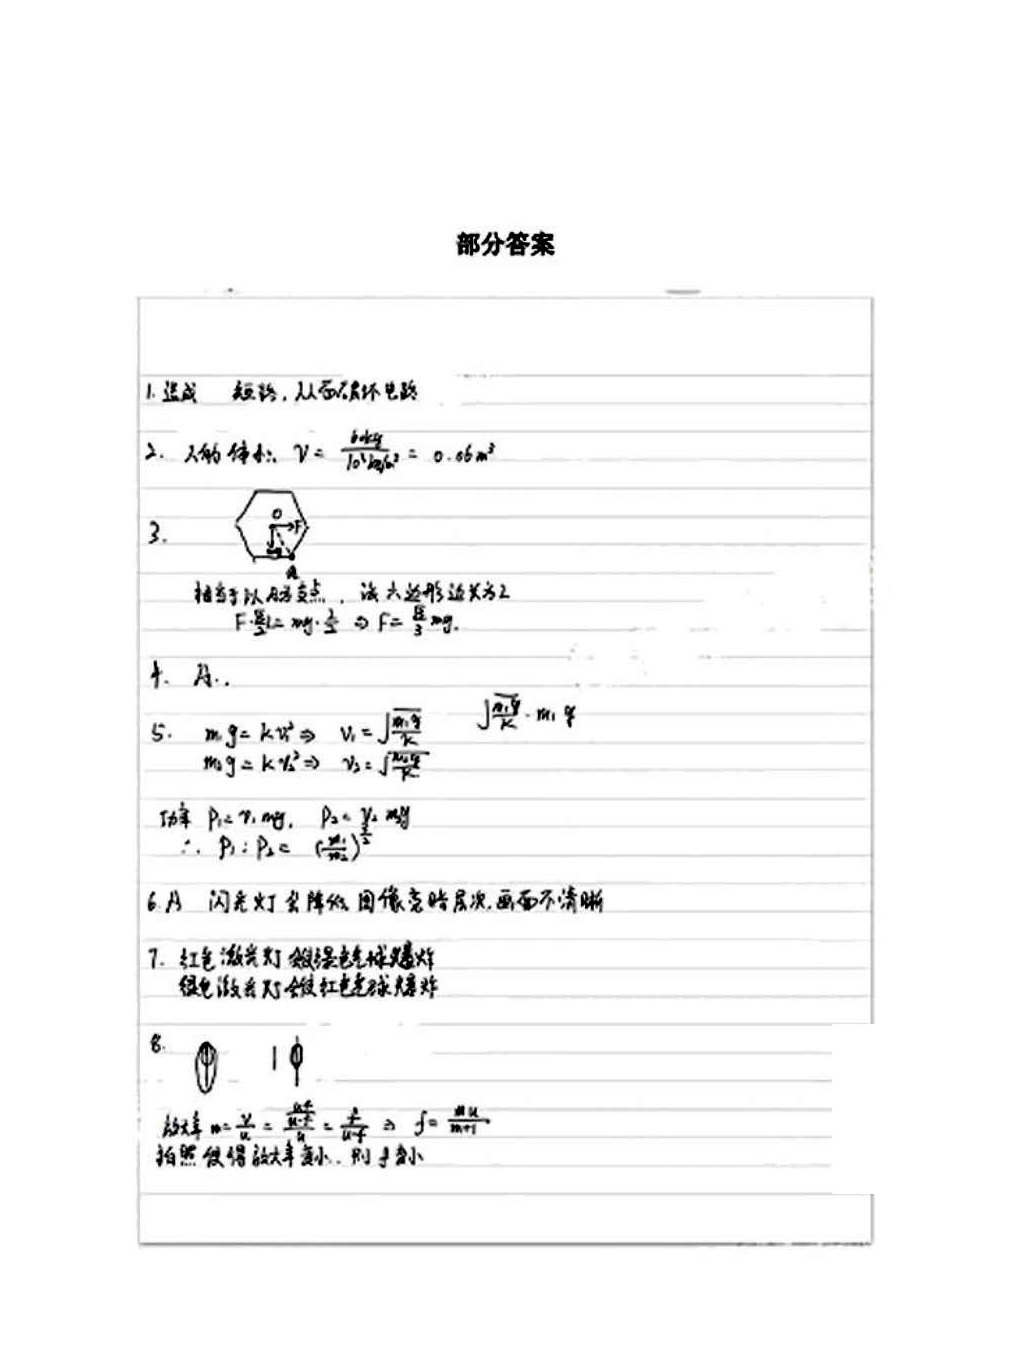 部分答案
1. 造成 短路，从而破坏电路
2. 人的体积 V = 60kg / 10³kg/m³ = 0.06m³
3.
O
F
mg
A
相当于以A为支点，设六边形边长为L
F·√3/2 L = mg·L/2 ⇒ F = √3/3 mg.
4. A.
5. m₁g = kv₁² ⇒ v₁ = √(m₁g/k) √(m₁g/k) · m₁g
m₂g = kv₂² ⇒ v₂ = √(m₂g/k)
功率 P₁ = v₁ m₁g, P₂ = v₂ m₂g
∴ P₁ : P₂ = (m₁/m₂)^(3/2)
6. A 闪光灯会降低图像亮暗层次，画面不清晰
7. 红色激光灯会使绿色气球爆炸
绿色激光灯会使红色气球爆炸
8.
放大率 m = v/u = (uf/(u-f))/u = f/(u-f) ⇒ f = mu/(m+1)
拍照使得放大率变小，则f变小